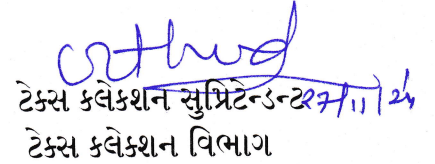 ટેક્સ કલેક્શન સુપ્રિટેન્ડન્ટ ૨૭/૧૧/૨૫
ટેક્સ કલેક્શન વિભાગ